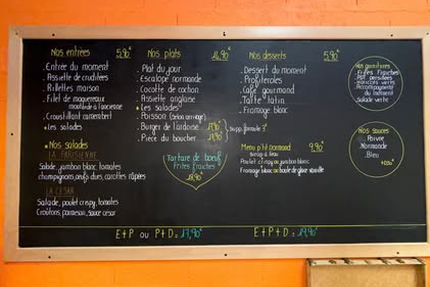 Nos entrées 5,90€
. Entrée du moment
. Assiette de crudités
. Rillettes maison
. Filet de maquereaux
moutarde à l'ancienne
. Croustillant camembert
. Les salades
Nos salades
LA PARISIENNE
Salade, jambon blanc, tomates
champignons, œufs durs, carottes râpées
LA CESAR
Salade, poulet crispy, tomates
Croutons, parmesan, sauce cesar
Nos plats 14,90€
. Plat du jour
. Escalope normande
. Cocotte de cochon
. Assiette anglaise
. Les salades
. Poisson (selon arrivage)
. Burger de l'ardoise
. Pièce du boucher
supp. formule
Tartare de boeuf
Frites fraiches
Nos desserts 5,90€
. Dessert du moment
. Profiteroles
. Café gourmand
. Tatte tatin
. Fromage blanc
Menu p'tit normand 9,90€
sirop à l'eau
Poulet crispy ou jambon blanc
Fromage blanc ou boule de glace vanille
Nos garnitures
. Frites fraiches
. Haricots verts
. Accompagnement
du moment
. Salade verte
Nos sauces
. Poivre
. Normande
. Bleu
E+P ou P+D = 17,90€
E+P+D = 19,90€